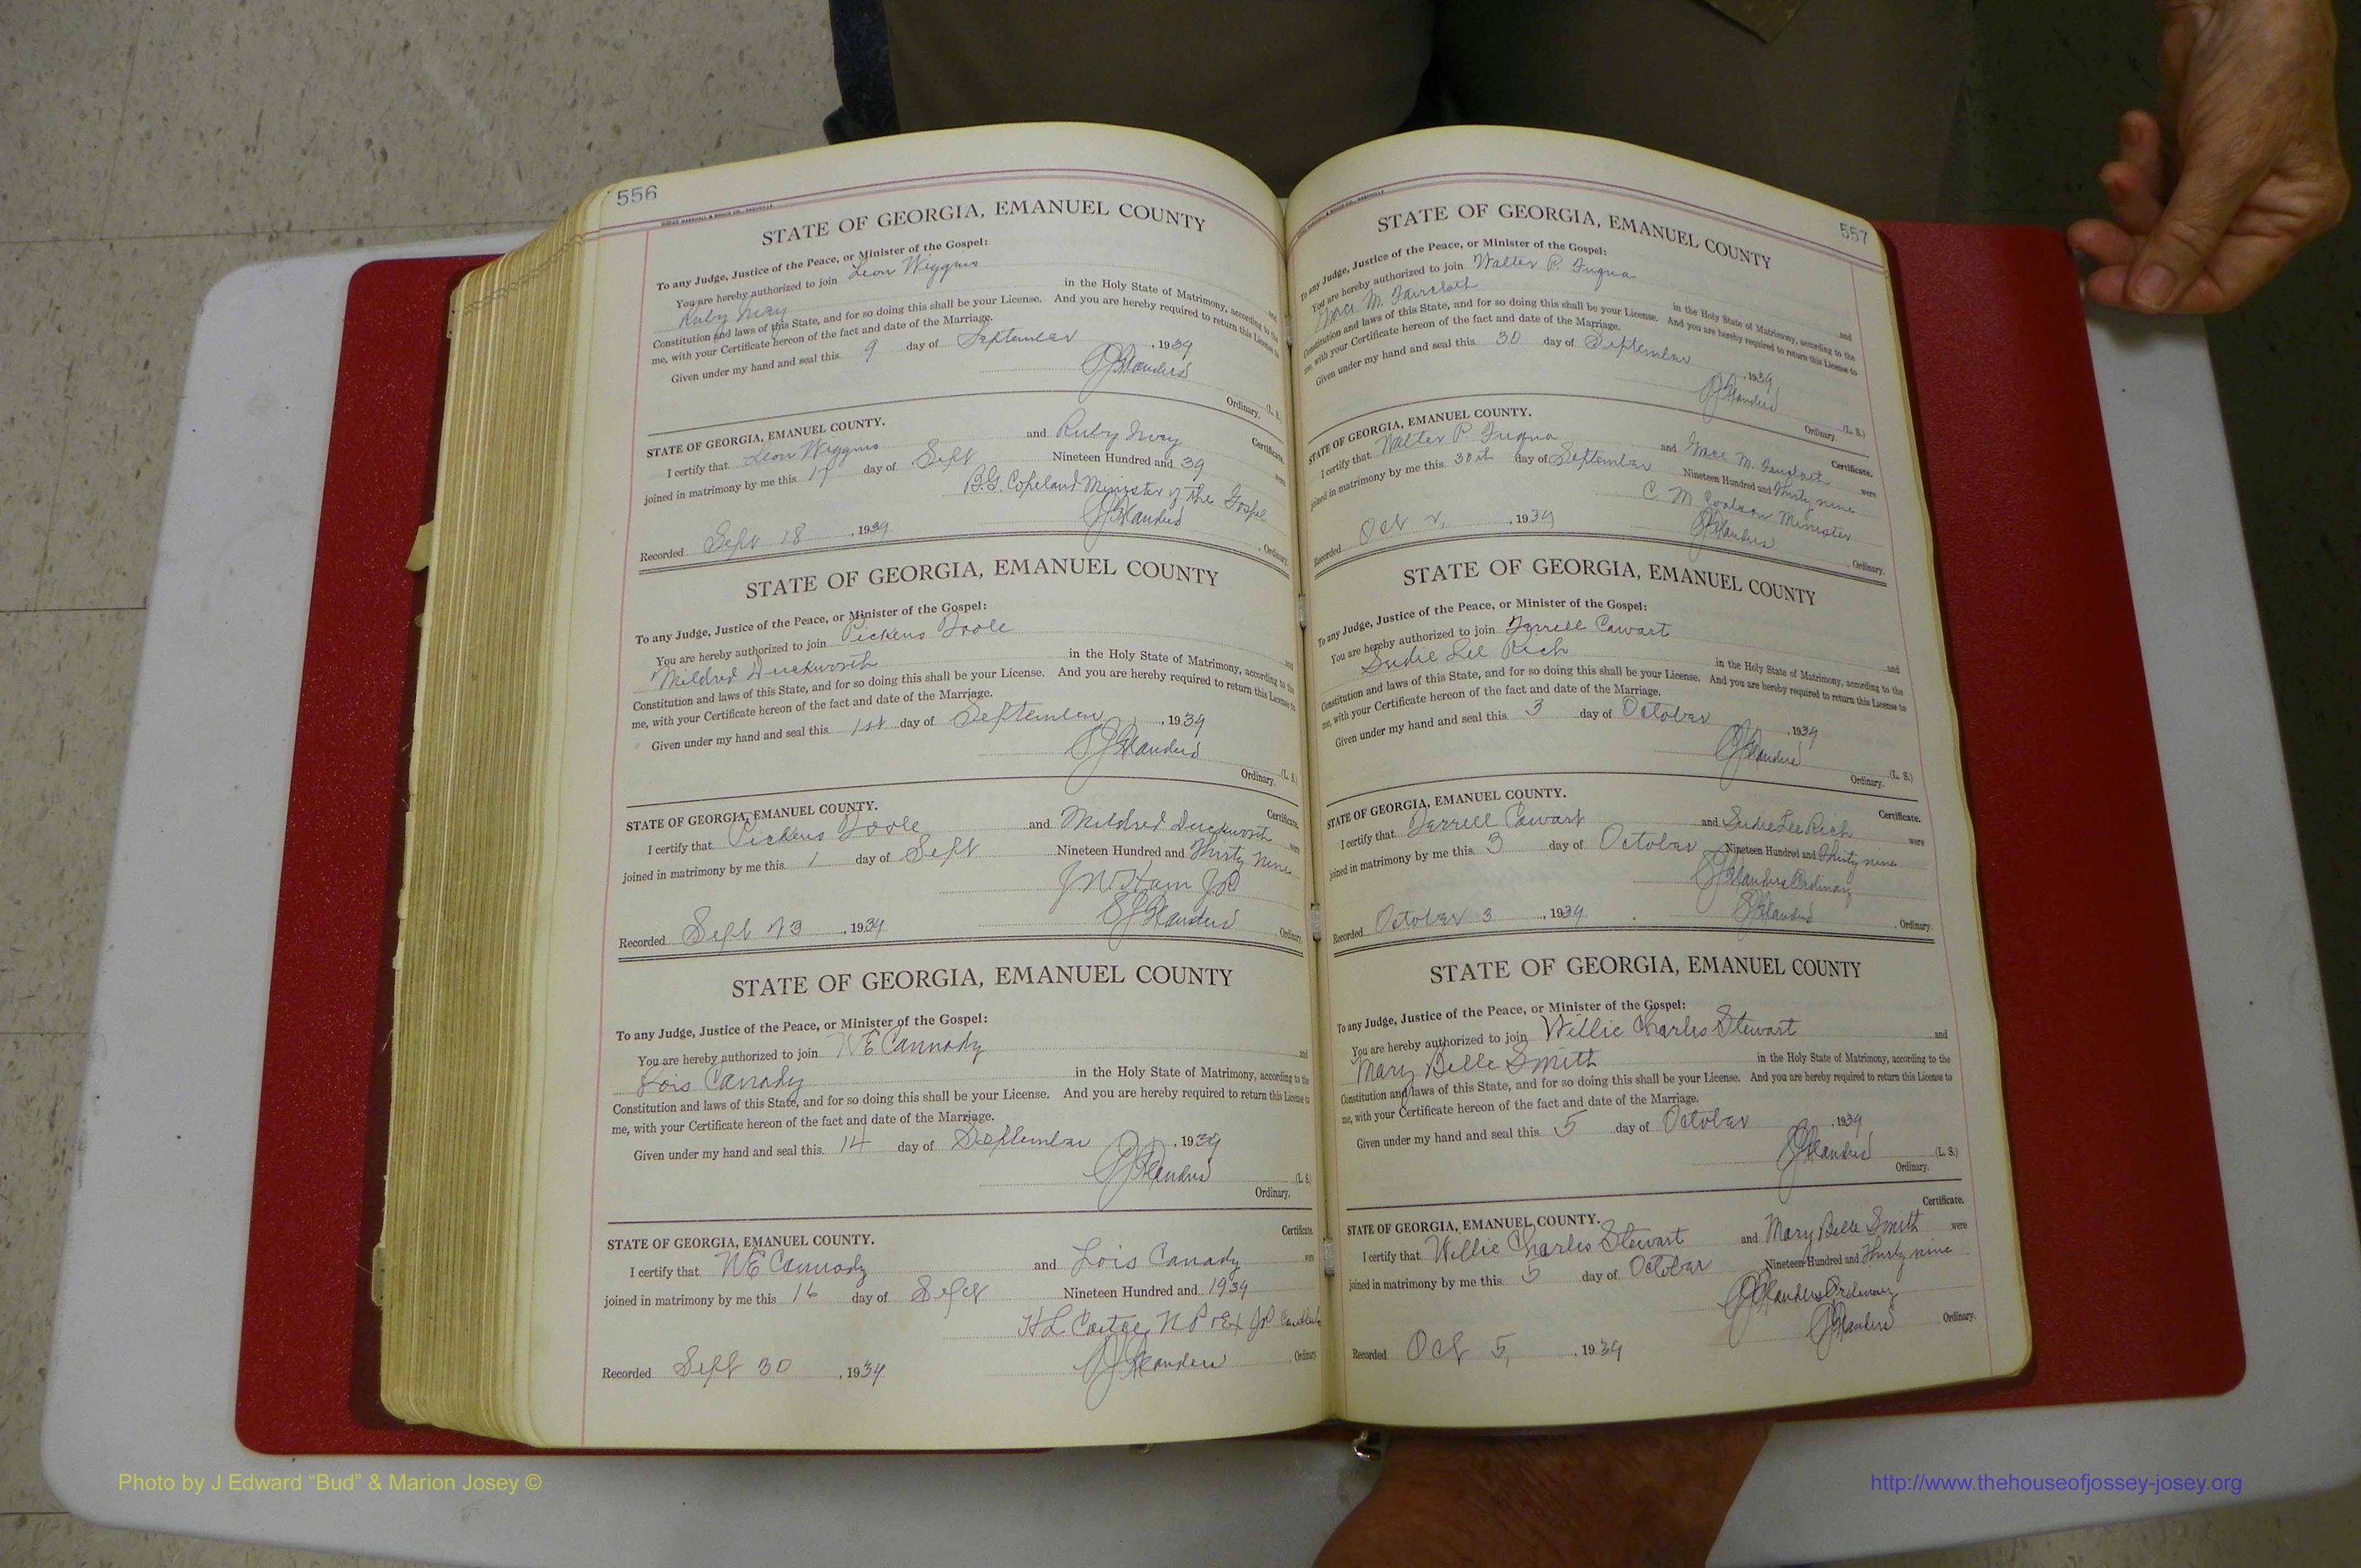 556
STATE OF GEORGIA, EMANUEL COUNTY
To any Judge, Justice of the Peace, or Minister of the Gospel:
You are hereby authorized to join Leon Wiggins and
Ruby Ivey in the Holy State of Matrimony, according to the
Constitution and laws of this State, and for so doing this shall be your License. And you are hereby required to return this License to
me, with your Certificate hereon of the fact and date of the Marriage.
Given under my hand and seal this 9 day of September, 1939
(L. S.)
Ordinary.
STATE OF GEORGIA, EMANUEL COUNTY. Certificate.
I certify that Leon Wiggins and Ruby Ivey were
joined in matrimony by me this 17 day of Sept Nineteen Hundred and 39
B.G. Copeland Minister of the Gospel
Recorded Sept 18, 1939 Flanders, Ordinary.
STATE OF GEORGIA, EMANUEL COUNTY
To any Judge, Justice of the Peace, or Minister of the Gospel:
You are hereby authorized to join Pickens Toole and
Mildred Duckworth in the Holy State of Matrimony, according to the
Constitution and laws of this State, and for so doing this shall be your License. And you are hereby required to return this License to
me, with your Certificate hereon of the fact and date of the Marriage.
Given under my hand and seal this 1st day of September, 1939
Flanders (L. S.)
Ordinary.
STATE OF GEORGIA, EMANUEL COUNTY. Certificate.
I certify that Pickens Toole and Mildred Duckworth were
joined in matrimony by me this 1 day of Sept Nineteen Hundred and Thirty Nine
J W Ham J.P.
Recorded Sept 23, 1939 Flanders, Ordinary.
STATE OF GEORGIA, EMANUEL COUNTY
To any Judge, Justice of the Peace, or Minister of the Gospel:
You are hereby authorized to join W E Cannady and
Lois Canady in the Holy State of Matrimony, according to the
Constitution and laws of this State, and for so doing this shall be your License. And you are hereby required to return this License to
me, with your Certificate hereon of the fact and date of the Marriage.
Given under my hand and seal this 14 day of September, 1939
Flanders (L. S.)
Ordinary.
Certificate.
STATE OF GEORGIA, EMANUEL COUNTY.
I certify that W E Cannady and Lois Canady were
joined in matrimony by me this 16 day of Sept Nineteen Hundred and 1939
H L N P & Ex J P
Recorded Sept 30, 1939 Flanders, Ordinary.
557
STATE OF GEORGIA, EMANUEL COUNTY
To any Judge, Justice of the Peace, or Minister of the Gospel:
You are hereby authorized to join Walter P. Fuqua and
M. Faircloth in the Holy State of Matrimony, according to the
Constitution and laws of this State, and for so doing this shall be your License. And you are hereby required to return this License to
me, with your Certificate hereon of the fact and date of the Marriage.
Given under my hand and seal this 30 day of September, 1939
Flanders (L. S.)
Ordinary.
STATE OF GEORGIA, EMANUEL COUNTY. Certificate.
I certify that Walter P Fuqua and M. Faircloth were
joined in matrimony by me this 30th day of September Nineteen Hundred and Thirty nine
C M Minister
Recorded Oct 2, 1939 Flanders, Ordinary.
STATE OF GEORGIA, EMANUEL COUNTY
To any Judge, Justice of the Peace, or Minister of the Gospel:
You are hereby authorized to join Terrell Cowart and
Sudie Lee Rich in the Holy State of Matrimony, according to the
Constitution and laws of this State, and for so doing this shall be your License. And you are hereby required to return this License to
me, with your Certificate hereon of the fact and date of the Marriage.
Given under my hand and seal this 3 day of October, 1939
Flanders (L. S.)
Ordinary.
STATE OF GEORGIA, EMANUEL COUNTY. Certificate.
I certify that Terrell Cowart and Sudie Lee Rich were
joined in matrimony by me this 3 day of October Nineteen Hundred and Thirty nine
Flanders Ordinary
Recorded October 3, 1939 Flanders, Ordinary.
STATE OF GEORGIA, EMANUEL COUNTY
To any Judge, Justice of the Peace, or Minister of the Gospel:
You are hereby authorized to join Willie Charles Stewart and
Mary Belle Smith in the Holy State of Matrimony, according to the
Constitution and laws of this State, and for so doing this shall be your License. And you are hereby required to return this License to
me, with your Certificate hereon of the fact and date of the Marriage.
Given under my hand and seal this 5 day of October, 1939
Flanders (L. S.)
Ordinary.
Certificate.
STATE OF GEORGIA, EMANUEL COUNTY.
I certify that Willie Charles Stewart and Mary Belle Smith were
joined in matrimony by me this 5 day of October Nineteen Hundred and Thirty nine
Flanders Ordinary
Recorded Oct 5, 1939 Flanders, Ordinary.
Photo by J Edward “Bud” & Marion Josey ©
http://www.thehouseofjossey-josey.org